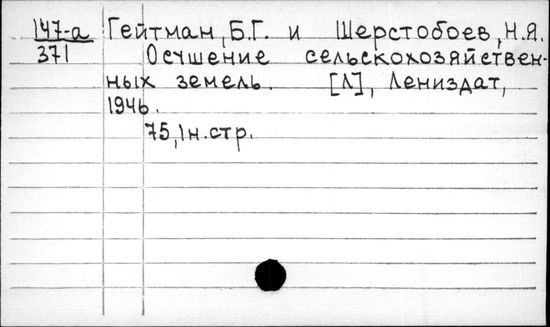 147-а Гейтман, Б.Г. и Шерстобоев, Н.Я.
371 Осушение сельскохозяйствен-
ных земель. [Л], Лениздат,
1946.
75, 1н. стр.